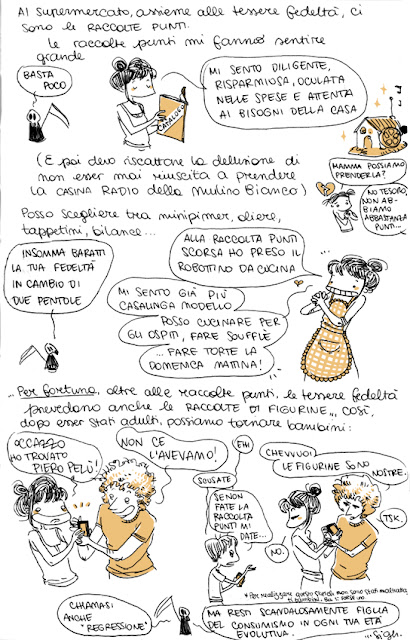 Al supermercato, assieme alle tessere fedeltà, ci
sono le RACCOLTE PUNTI.
Le raccolte punti mi fanno sentire
grande
BASTA
POCO
CATALOGO
MI SENTO DILIGENTE,
RISPARMIOSA, OCULATA
NELLE SPESE E ATTENTA
AI BISOGNI DELLA CASA
(E poi devo riscattare la delusione di
non esser mai riuscita a prendere
la CASINA RADIO della Mulino Bianco)
MAMMA POSSIAMO
PRENDERLA?
NO TESORO,
NON AB-
BIAMO
ABBASTANZA
PUNTI...
Posso scegliere tra minipimer, oliere,
tappetini, bilance...
INSOMMA BARATTI
LA TUA FEDELTÀ
IN CAMBIO DI
DUE PENTOLE
ALLA RACCOLTA PUNTI
SCORSA HO PRESO IL
ROBOTTINO DA CUCINA
MI SENTO GIÀ PIÙ
CASALINGA MODELLO
POSSO CUCINARE PER
GLI OSPITI, FARE SOUFFLÈ
... FARE TORTE LA
DOMENICA MATTINA!
...Per fortuna, oltre alle raccolte punti, le tessere fedeltà
prevedono anche le RACCOLTE DI FIGURINE... così,
dopo esser stati adulti, possiamo tornare bambini:
OCCAZZO
HO TROVATO
PIERO PELÙ!
NON CE
L'AVEVAMO!
CHIAMASI
ANCHE
"REGRESSIONE"
EHI
SCUSATE
SE NON
FATE LA
RACCOLTA
PUNTI MI
DATE...
CHEVVUOI
LE FIGURINE SONO
NOSTRE.
NO.
TSK.
* Per realizzare questo fumetto non sono stati maltrattati
MA RESTI SCANDALOSAMENTE FIGLIA
DEL CONSUMISMO IN OGNI TUA ETÀ
EVOLUTIVA.
...Sigh.